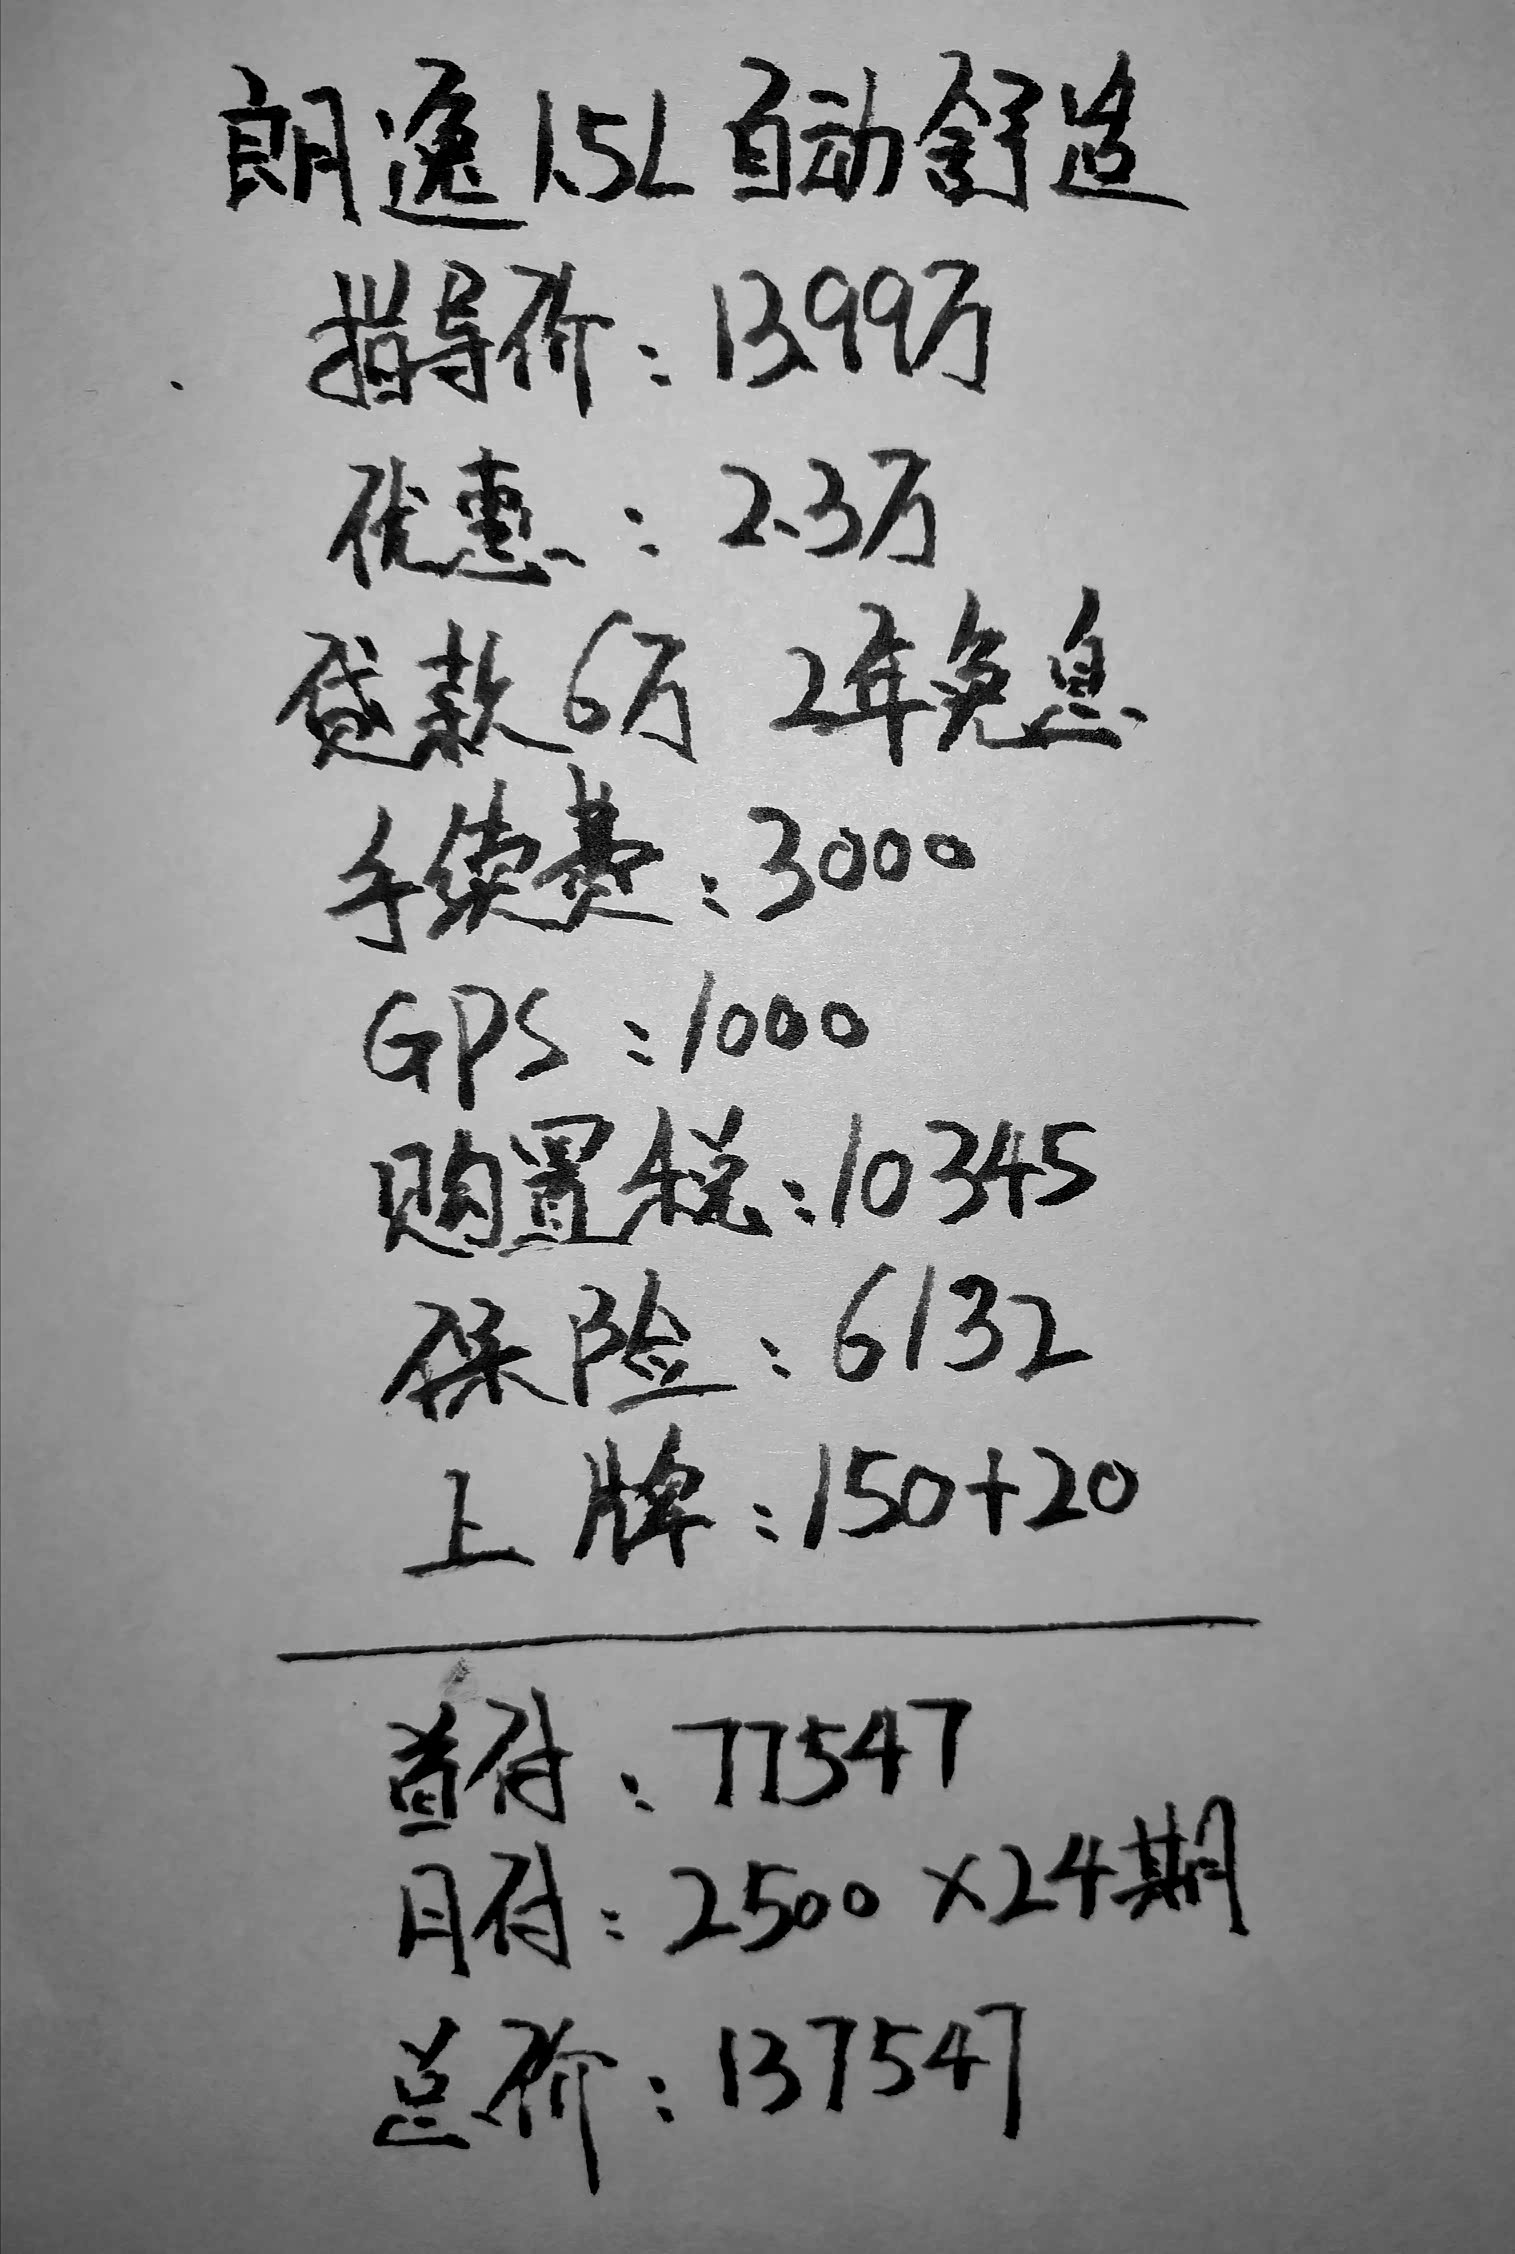 朗逸1.5L自动舒适
指导价:13.99万
优惠:2.3万
贷款6万 2年免息
手续费:3000
GPS:1000
购置税:10345
保险:6132
上牌:150+20
首付:77547
月付:2500×24期
总价:137547